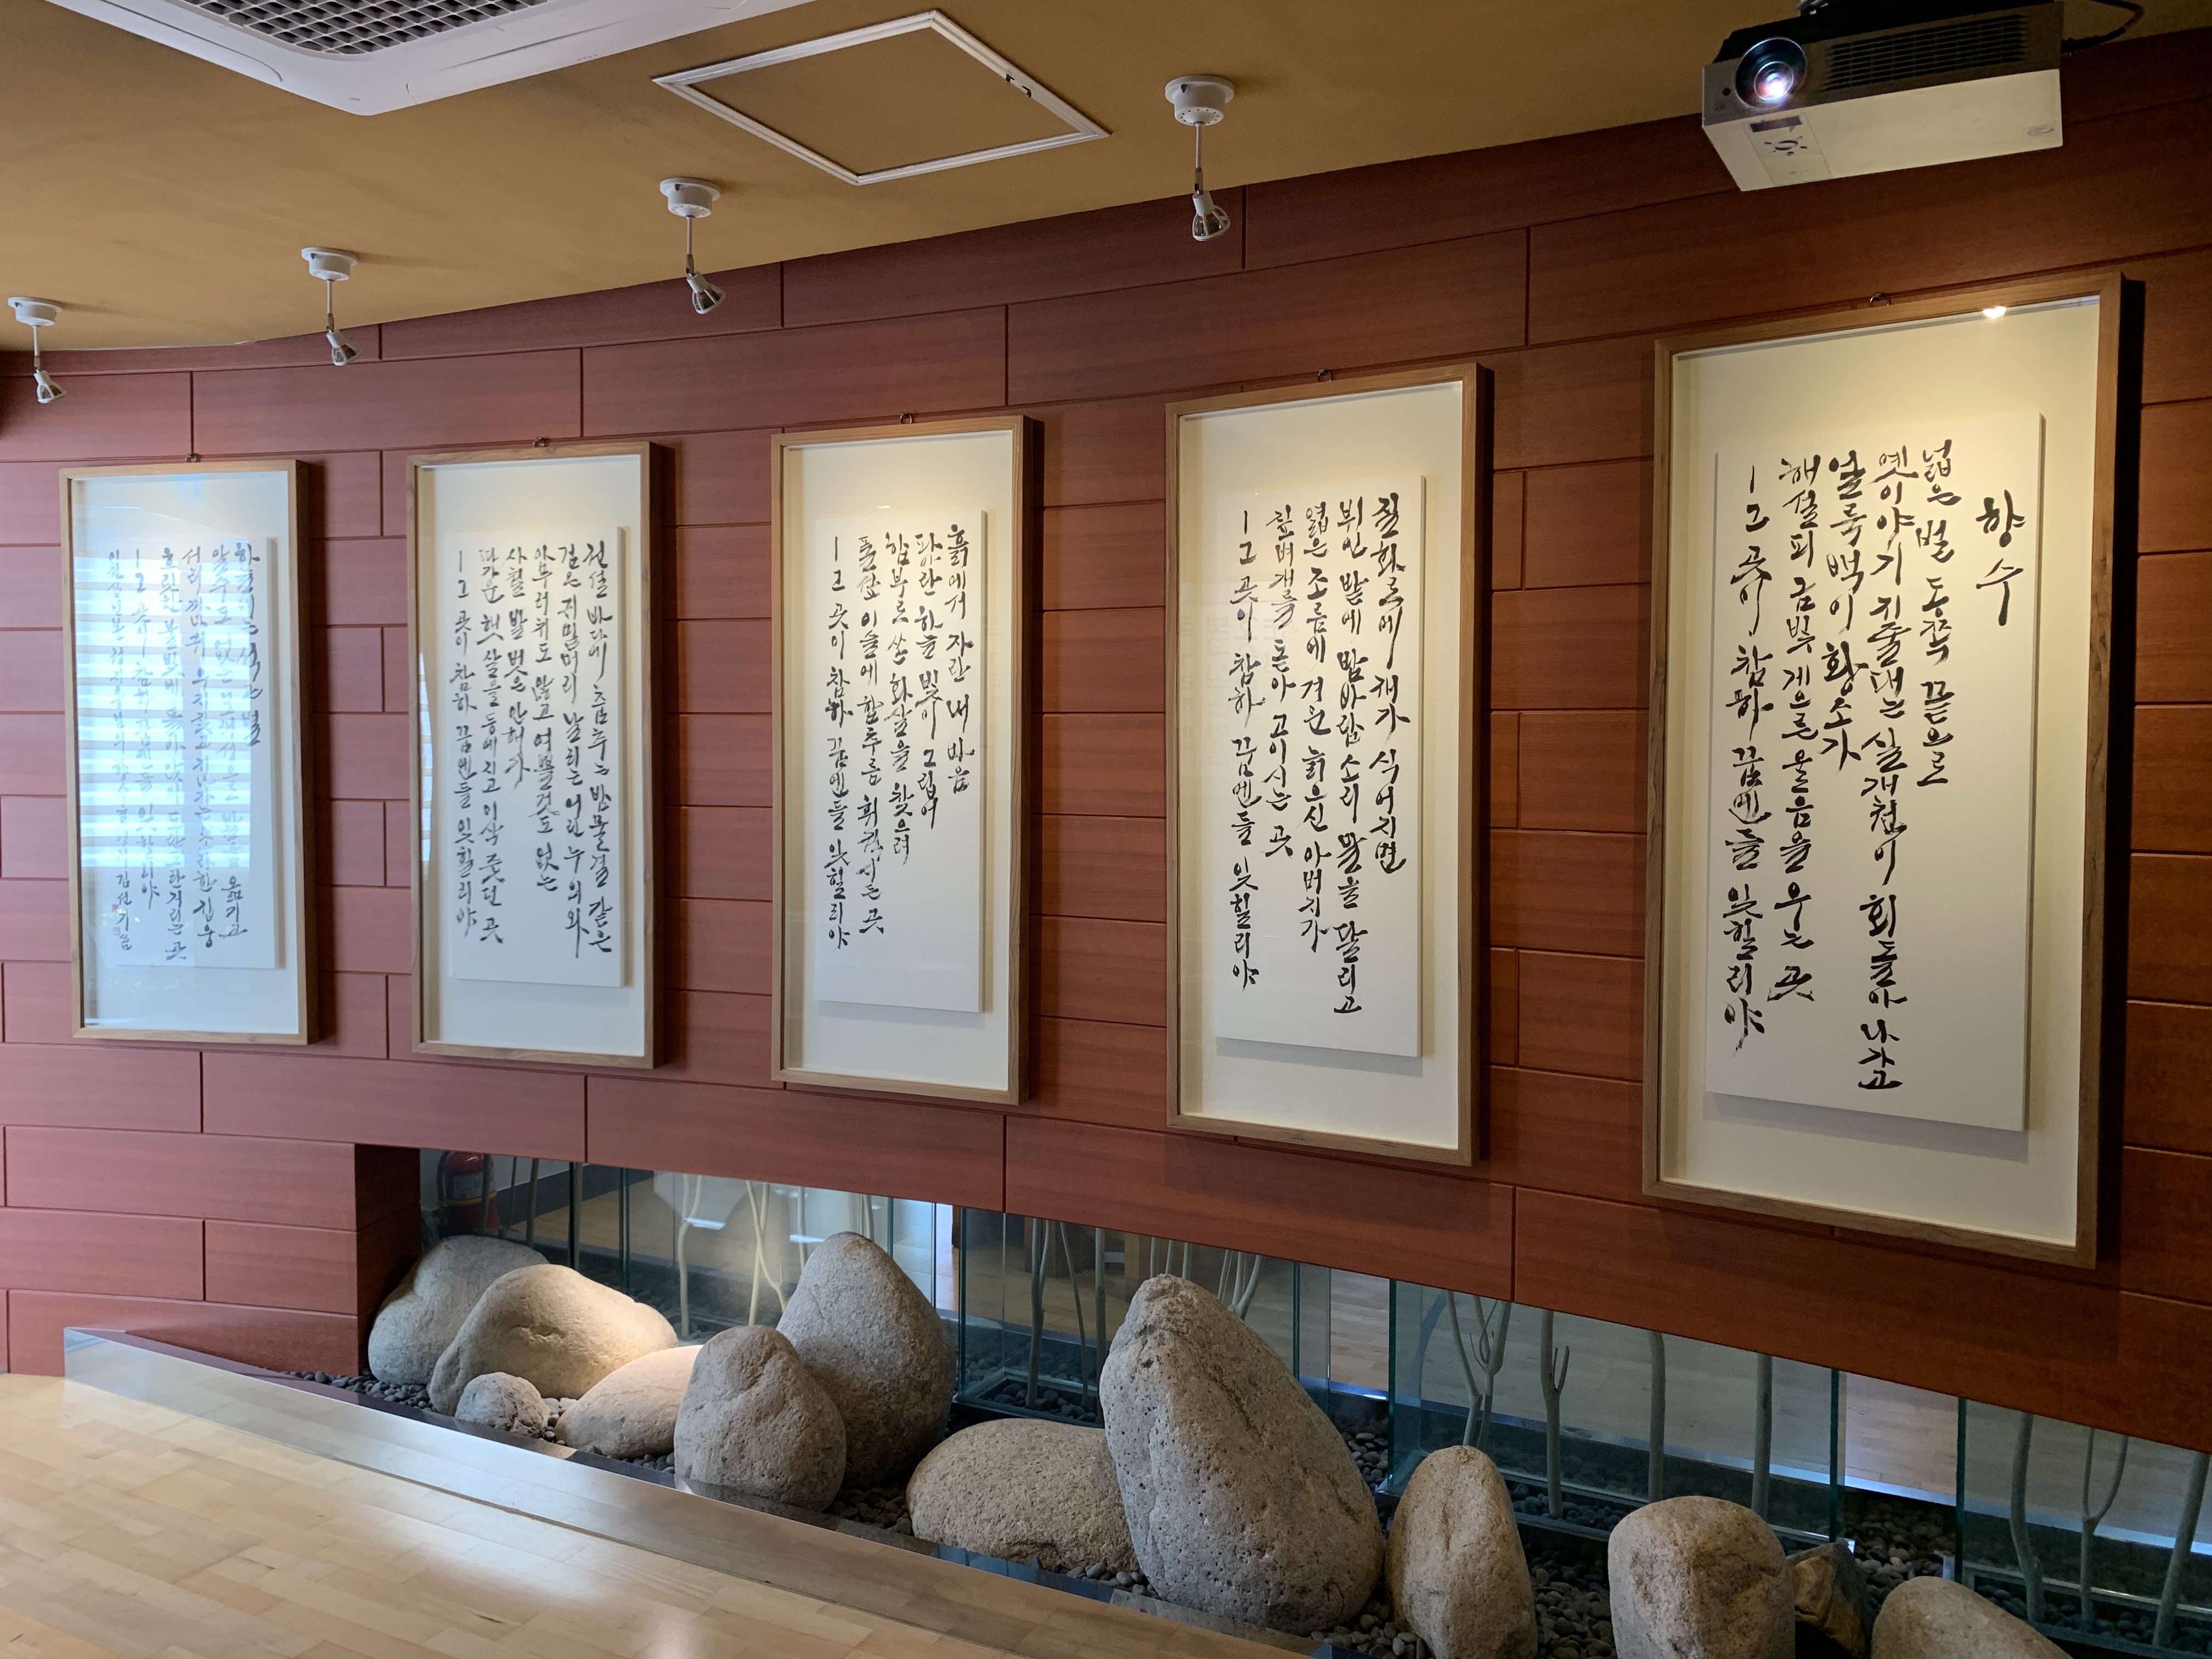 향수
넓은 벌 동쪽 끝으로
옛이야기 지줄대는 실개천이 회돌아 나가고
얼룩백이 황소가
해설피 금빛 게으른 울음을 우는 곳
ㅣ그 곳이 참하 꿈엔들 잊힐리야
질화로에 재가 식어지면
뷔인 밭에 밤바람 소리 말을 달리고
엷은 조름에 겨운 늙으신 아버지가
짚벼개를 돋아 고이시는 곳
ㅣ그 곳이 참하 꿈엔들 잊힐리야
흙에서 자란 내 마음
파아란 하늘 빛이 그립어
함부로 쏜 화살을 찾으려
풀섶 이슬에 함추름 휘적시든 곳
ㅣ그 곳이 참하 꿈엔들 잊힐리야
전설 바다에 춤추는 밤물결 같은
검은 귀밑머리 날리는 어린 누의와
아무러치도 않고 여쁠것도 없는
사철 발 벗은 안해가
따가운 햇살을 등에 지고 이삭 줏던 곳
ㅣ그 곳이 참하 꿈엔들 잊힐리야
하늘에는 석근 별
알수도 없는 모래성으로 발을 옮기고
서리 까마귀 우지짖고 지나가는 초라한 지붕
흐릿한 불빛에 돌아 앉어 도란도란거리는 곳
ㅣ그 곳이 참하 꿈엔들 잊힐리야